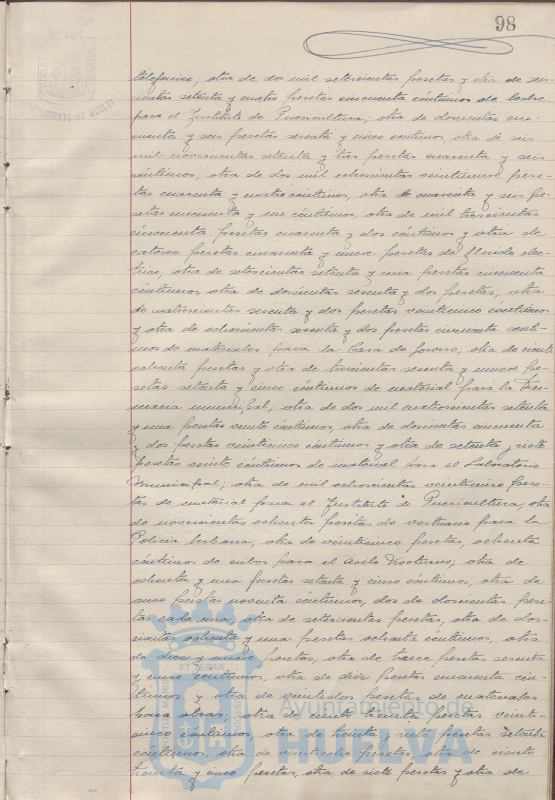 98
telefónico; otra de dos mil setecientas pesetas y otra de seis-
cientas setenta y cuatro pesetas cincuenta céntimos de leche
para el Instituto de Puericultura; otra de doscientas cin-
cuenta y seis pesetas sesenta y cinco céntimos, otra de seis
mil novecientas setenta y tres pesetas cuarenta y seis
céntimos, otra de dos mil ochocientas veintinueve pese-
tas cuarenta y cuatro céntimos, otra de cuarenta y seis pe-
setas cincuenta y un céntimos, otra de mil trescientas
cincuenta pesetas cuarenta y dos céntimos y otra de
catorce pesetas cincuenta y nueve pesetas de fluido elec-
trico; otra de setecientas setenta y una pesetas cincuenta
céntimos, otra de doscientas sesenta y dos pesetas, otra
de cuatrocientas sesenta y dos pesetas veinticinco céntimos
y otra de ochocientas sesenta y dos pesetas cincuenta cénti-
mos de materiales para la Casa de Socorro; otra de ciento
ochenta pesetas y otra de trescientas sesenta y nueve pe-
setas setenta y cinco céntimos de material para la Far-
macia municipal; otra de dos mil cuatrocientas setenta
y una pesetas veinte céntimos, otra de doscientas cincuenta
y dos pesetas veinticinco céntimos y otra de setenta y siete
pesetas veinte céntimos de material para el Laboratorio
Municipal; otra de mil ochocientas veinticinco pese-
tas de material para el Instituto de Puericultura; otra
de novecientas ochenta pesetas de vestuario para la
Policía Urbana; otra de veinticinco pesetas, ochenta
céntimos de para el Asilo Nocturno; otra de
ochenta y una pesetas setenta y cinco céntimos, otra de
pesetas noventa céntimos, dos de doscientas pese-
tas cada una, otra de setecientas pesetas, otra de dos-
cientas ochenta y una pesetas ochenta céntimos, otra
de diez y nueve pesetas, otra de trece pesetas sesenta
y cinco céntimos, otra de diez pesetas cincuenta cén-
timos y otra de veintidos pesetas de materiales
para obras; otra de ciento treinta pesetas veinti-
cinco céntimos, otra de treinta y seis pesetas setenta
céntimos, otra de pesetas, otra de ciento
treinta y cinco pesetas, otra de siete pesetas y otra de
Ayuntamiento de
HUELVA